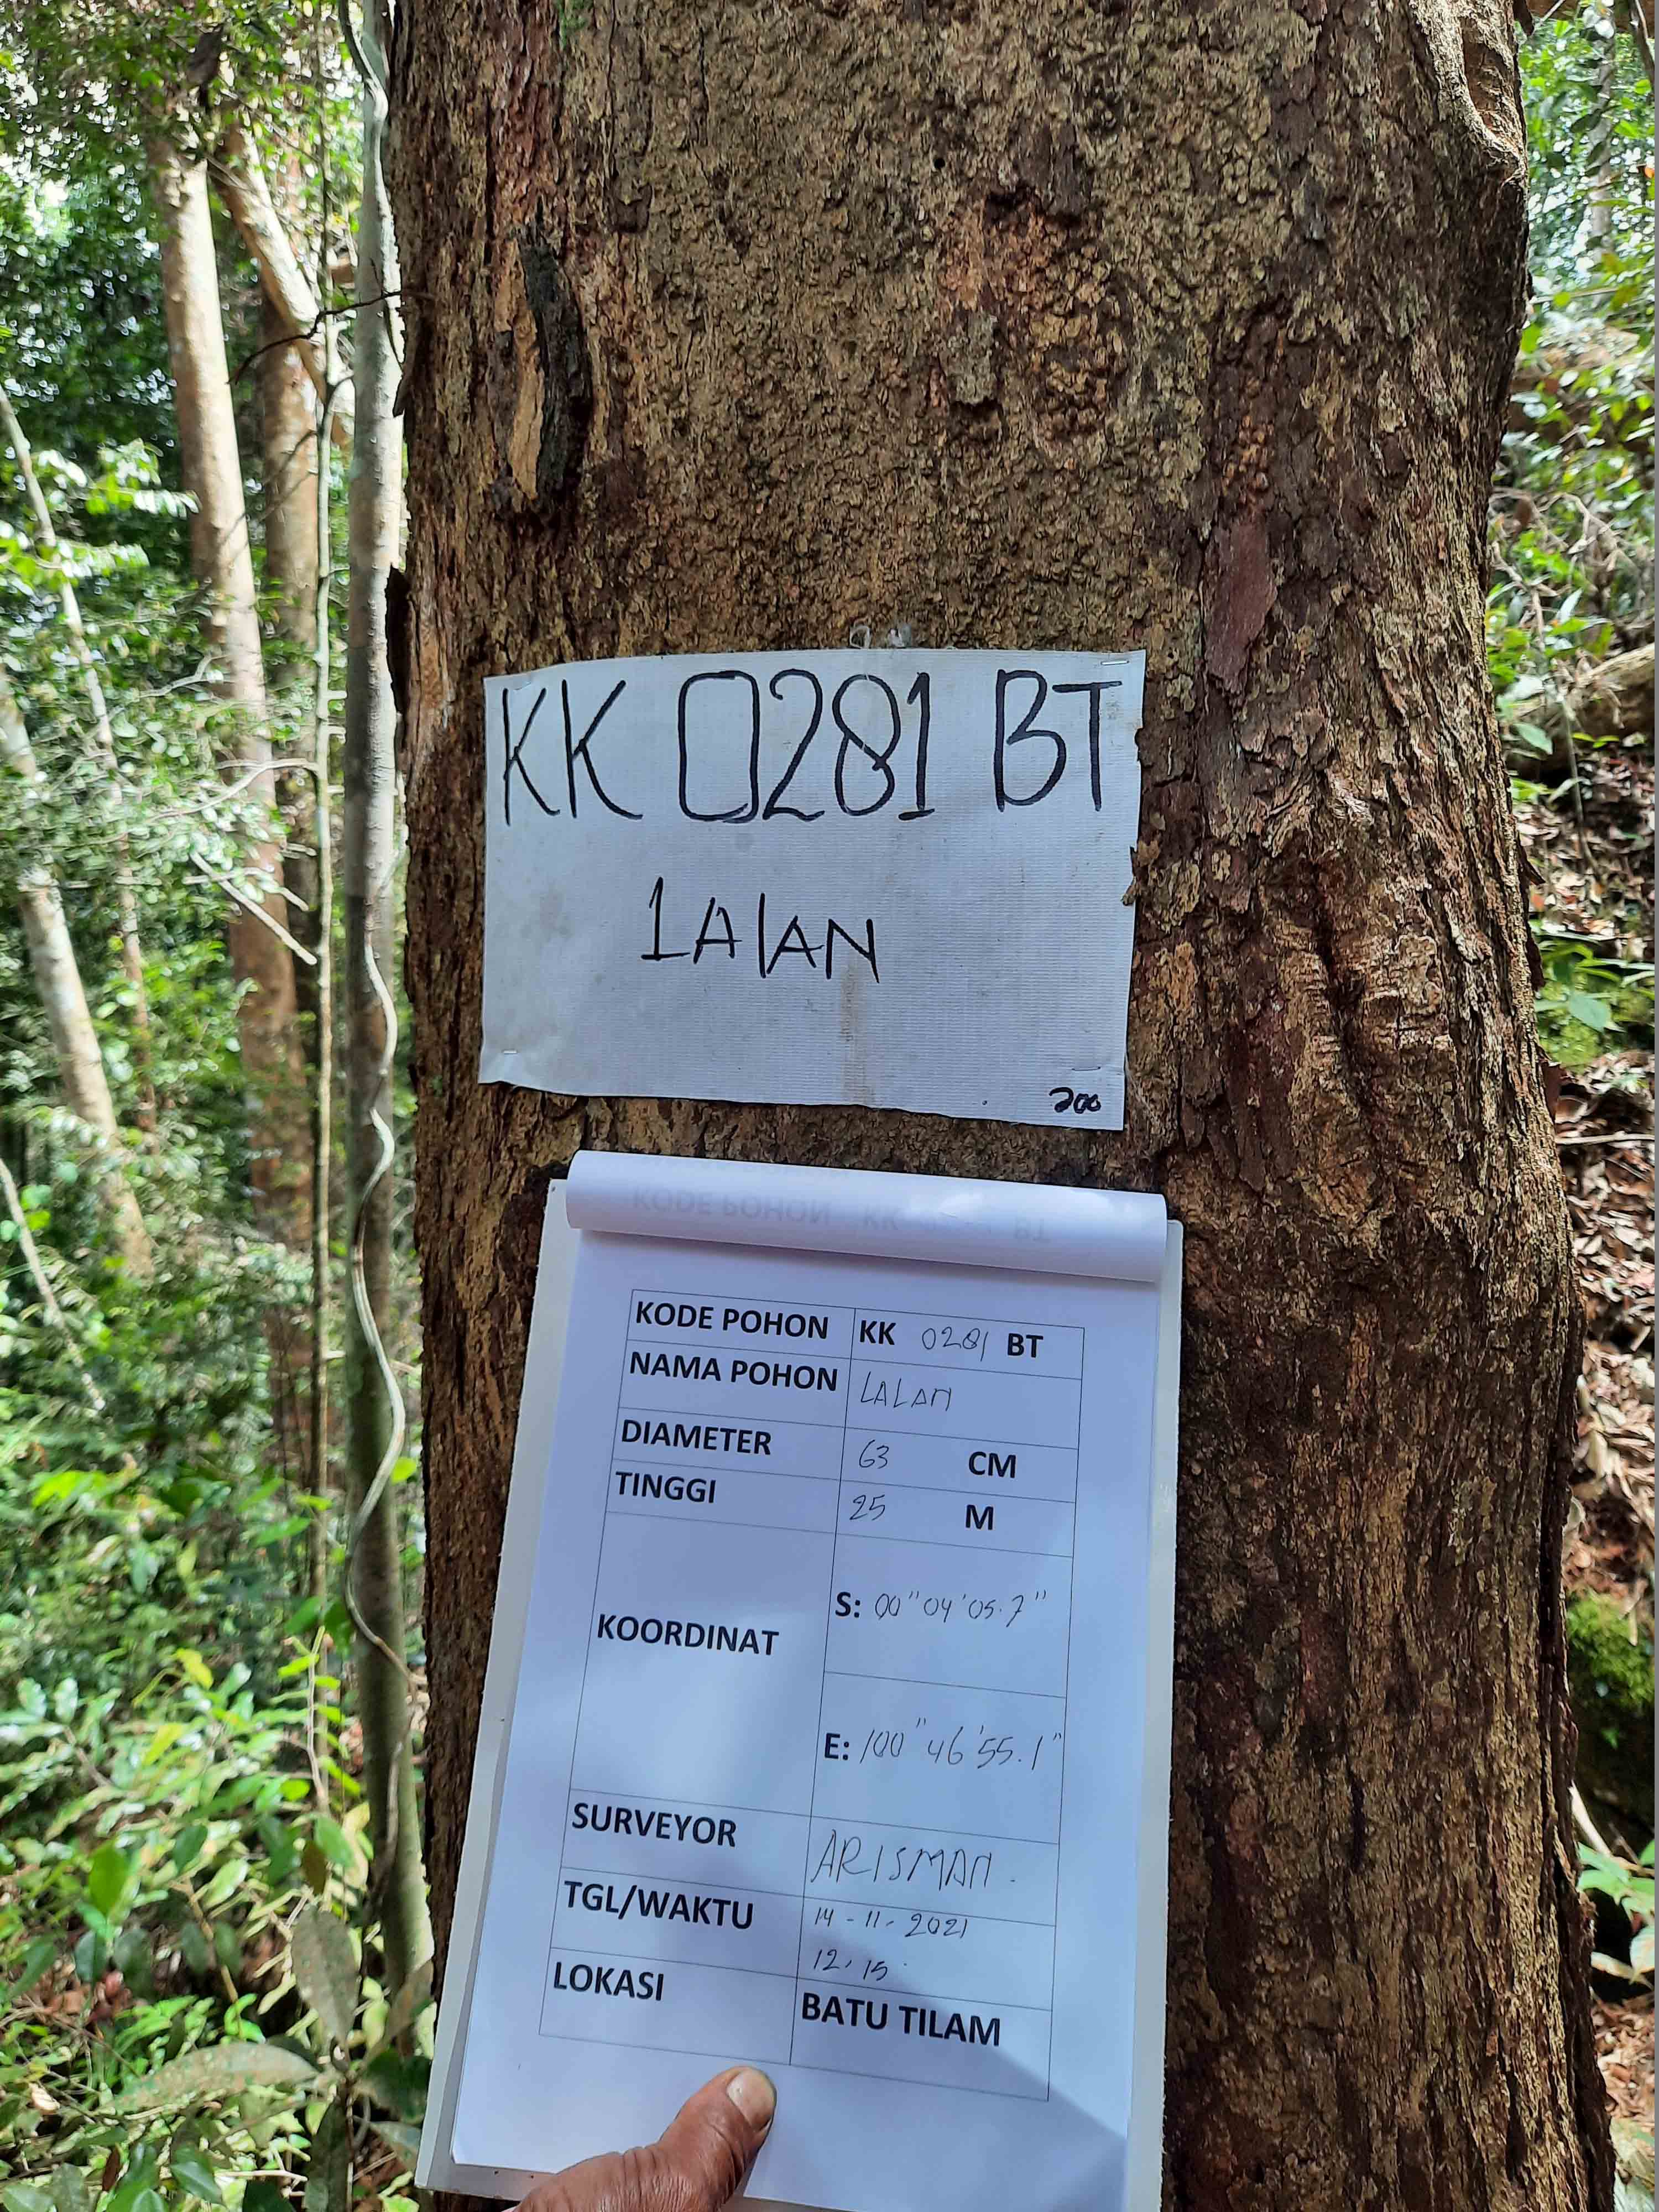 KK 0281 BT
LALAN
200
KODE POHON KK 0281 BT
NAMA POHON LALAN
DIAMETER 63 CM
TINGGI 25 M
KOORDINAT
S: 00"04'05.7"
E: 100"46'55.1"
SURVEYOR ARISMAN.
TGL/WAKTU 14-11-2021
12.15
LOKASI BATU TILAM